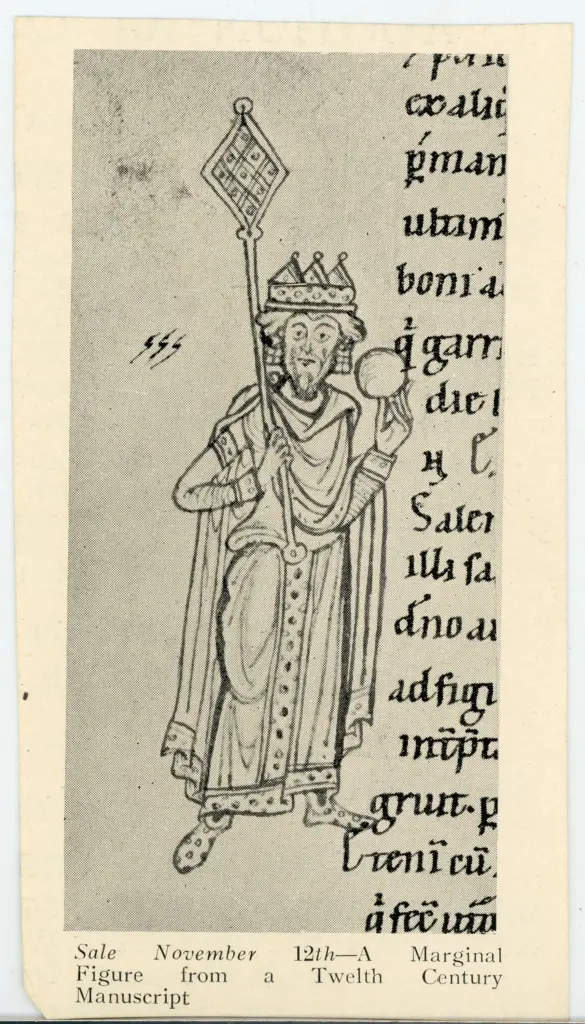 exaliq
p̄man
ultim
boni a
garri
die l
Saler
illi sa
dn̄o au
ad figu
int̄p̄t
gruit. p
teni cū
q̇ fec̄
Sale November 12th—A Marginal
Figure from a Twelth Century
Manuscript